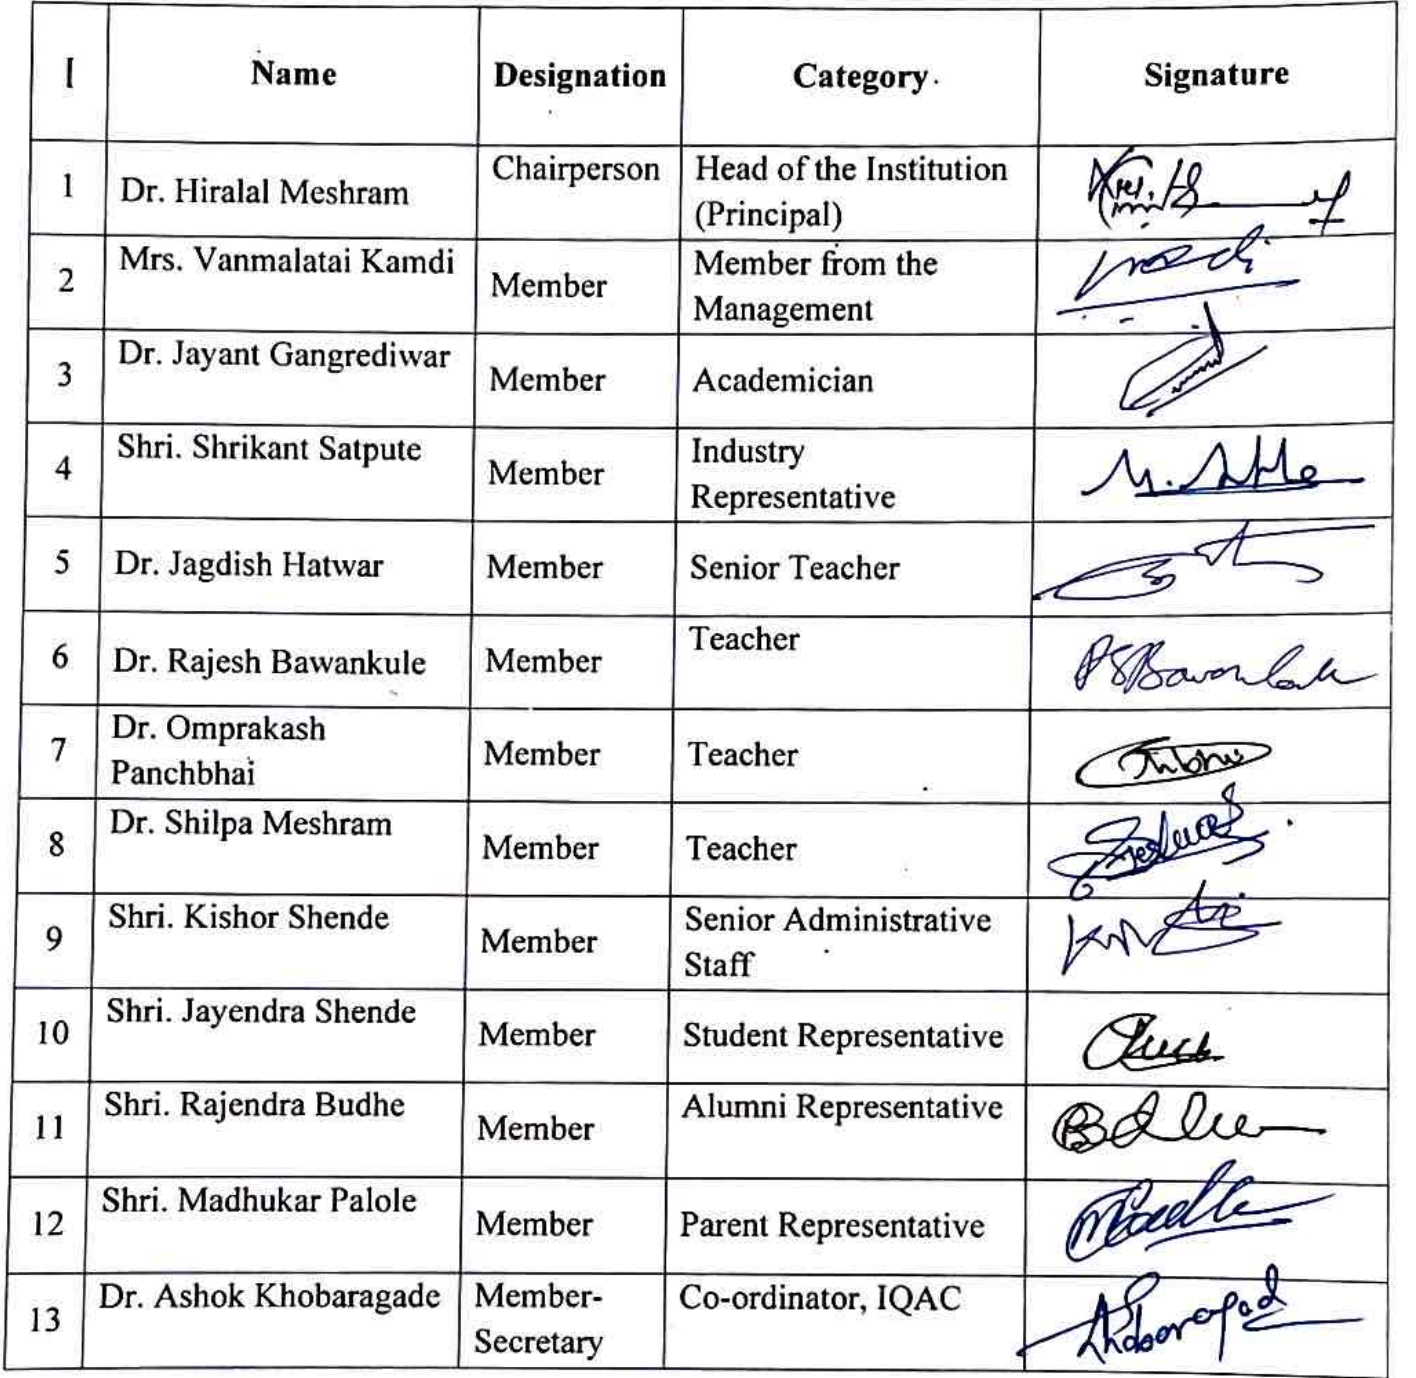 [ Name Designation Category Signature
1 Dr. Hiralal Meshram Chairperson Head of the Institution
(Principal)
2 Mrs. Vanmalatai Kamdi Member Member from the
Management
3 Dr. Jayant Gangrediwar Member Academician
4 Shri. Shrikant Satpute Member Industry
Representative
5 Dr. Jagdish Hatwar Member Senior Teacher
6 Dr. Rajesh Bawankule Member Teacher
7 Dr. Omprakash
Panchbhai Member Teacher
8 Dr. Shilpa Meshram Member Teacher
9 Shri. Kishor Shende Member Senior Administrative
Staff
10 Shri. Jayendra Shende Member Student Representative
11 Shri. Rajendra Budhe Member Alumni Representative
12 Shri. Madhukar Palole Member Parent Representative
13 Dr. Ashok Khobaragade Member-
Secretary Co-ordinator, IQAC